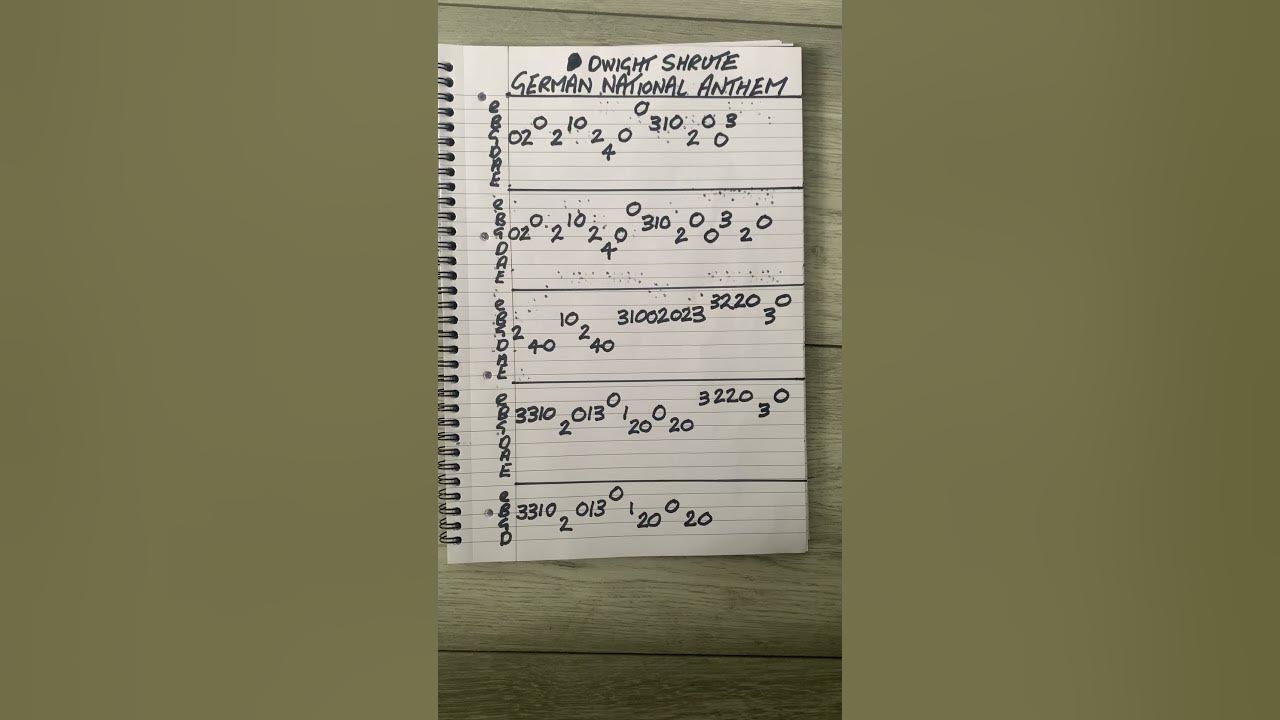 DWIGHT SHRUTE
GERMAN NATIONAL ANTHEM
e 0
B 0 10 310 0 3
G 02 2 2 0 2 0
D 4
A
E
e 0
B 0 10 310 0 3 0
G 02 2 2 0 2 0 2
D 4
A
E
e 3220 0
B 10 31002023 3
G 2 2
D 40 40
A
E
e 0 3220 0
B 3310 013 1 0 3
G 2 20 20
D
A
E
e 0
B 3310 013 1 0
G 2 20 20
D